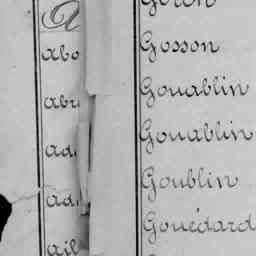 A
abo
Gosson
Gouablin
abr
Gouablin
ad
Goublin
ad
Gouédard
ail